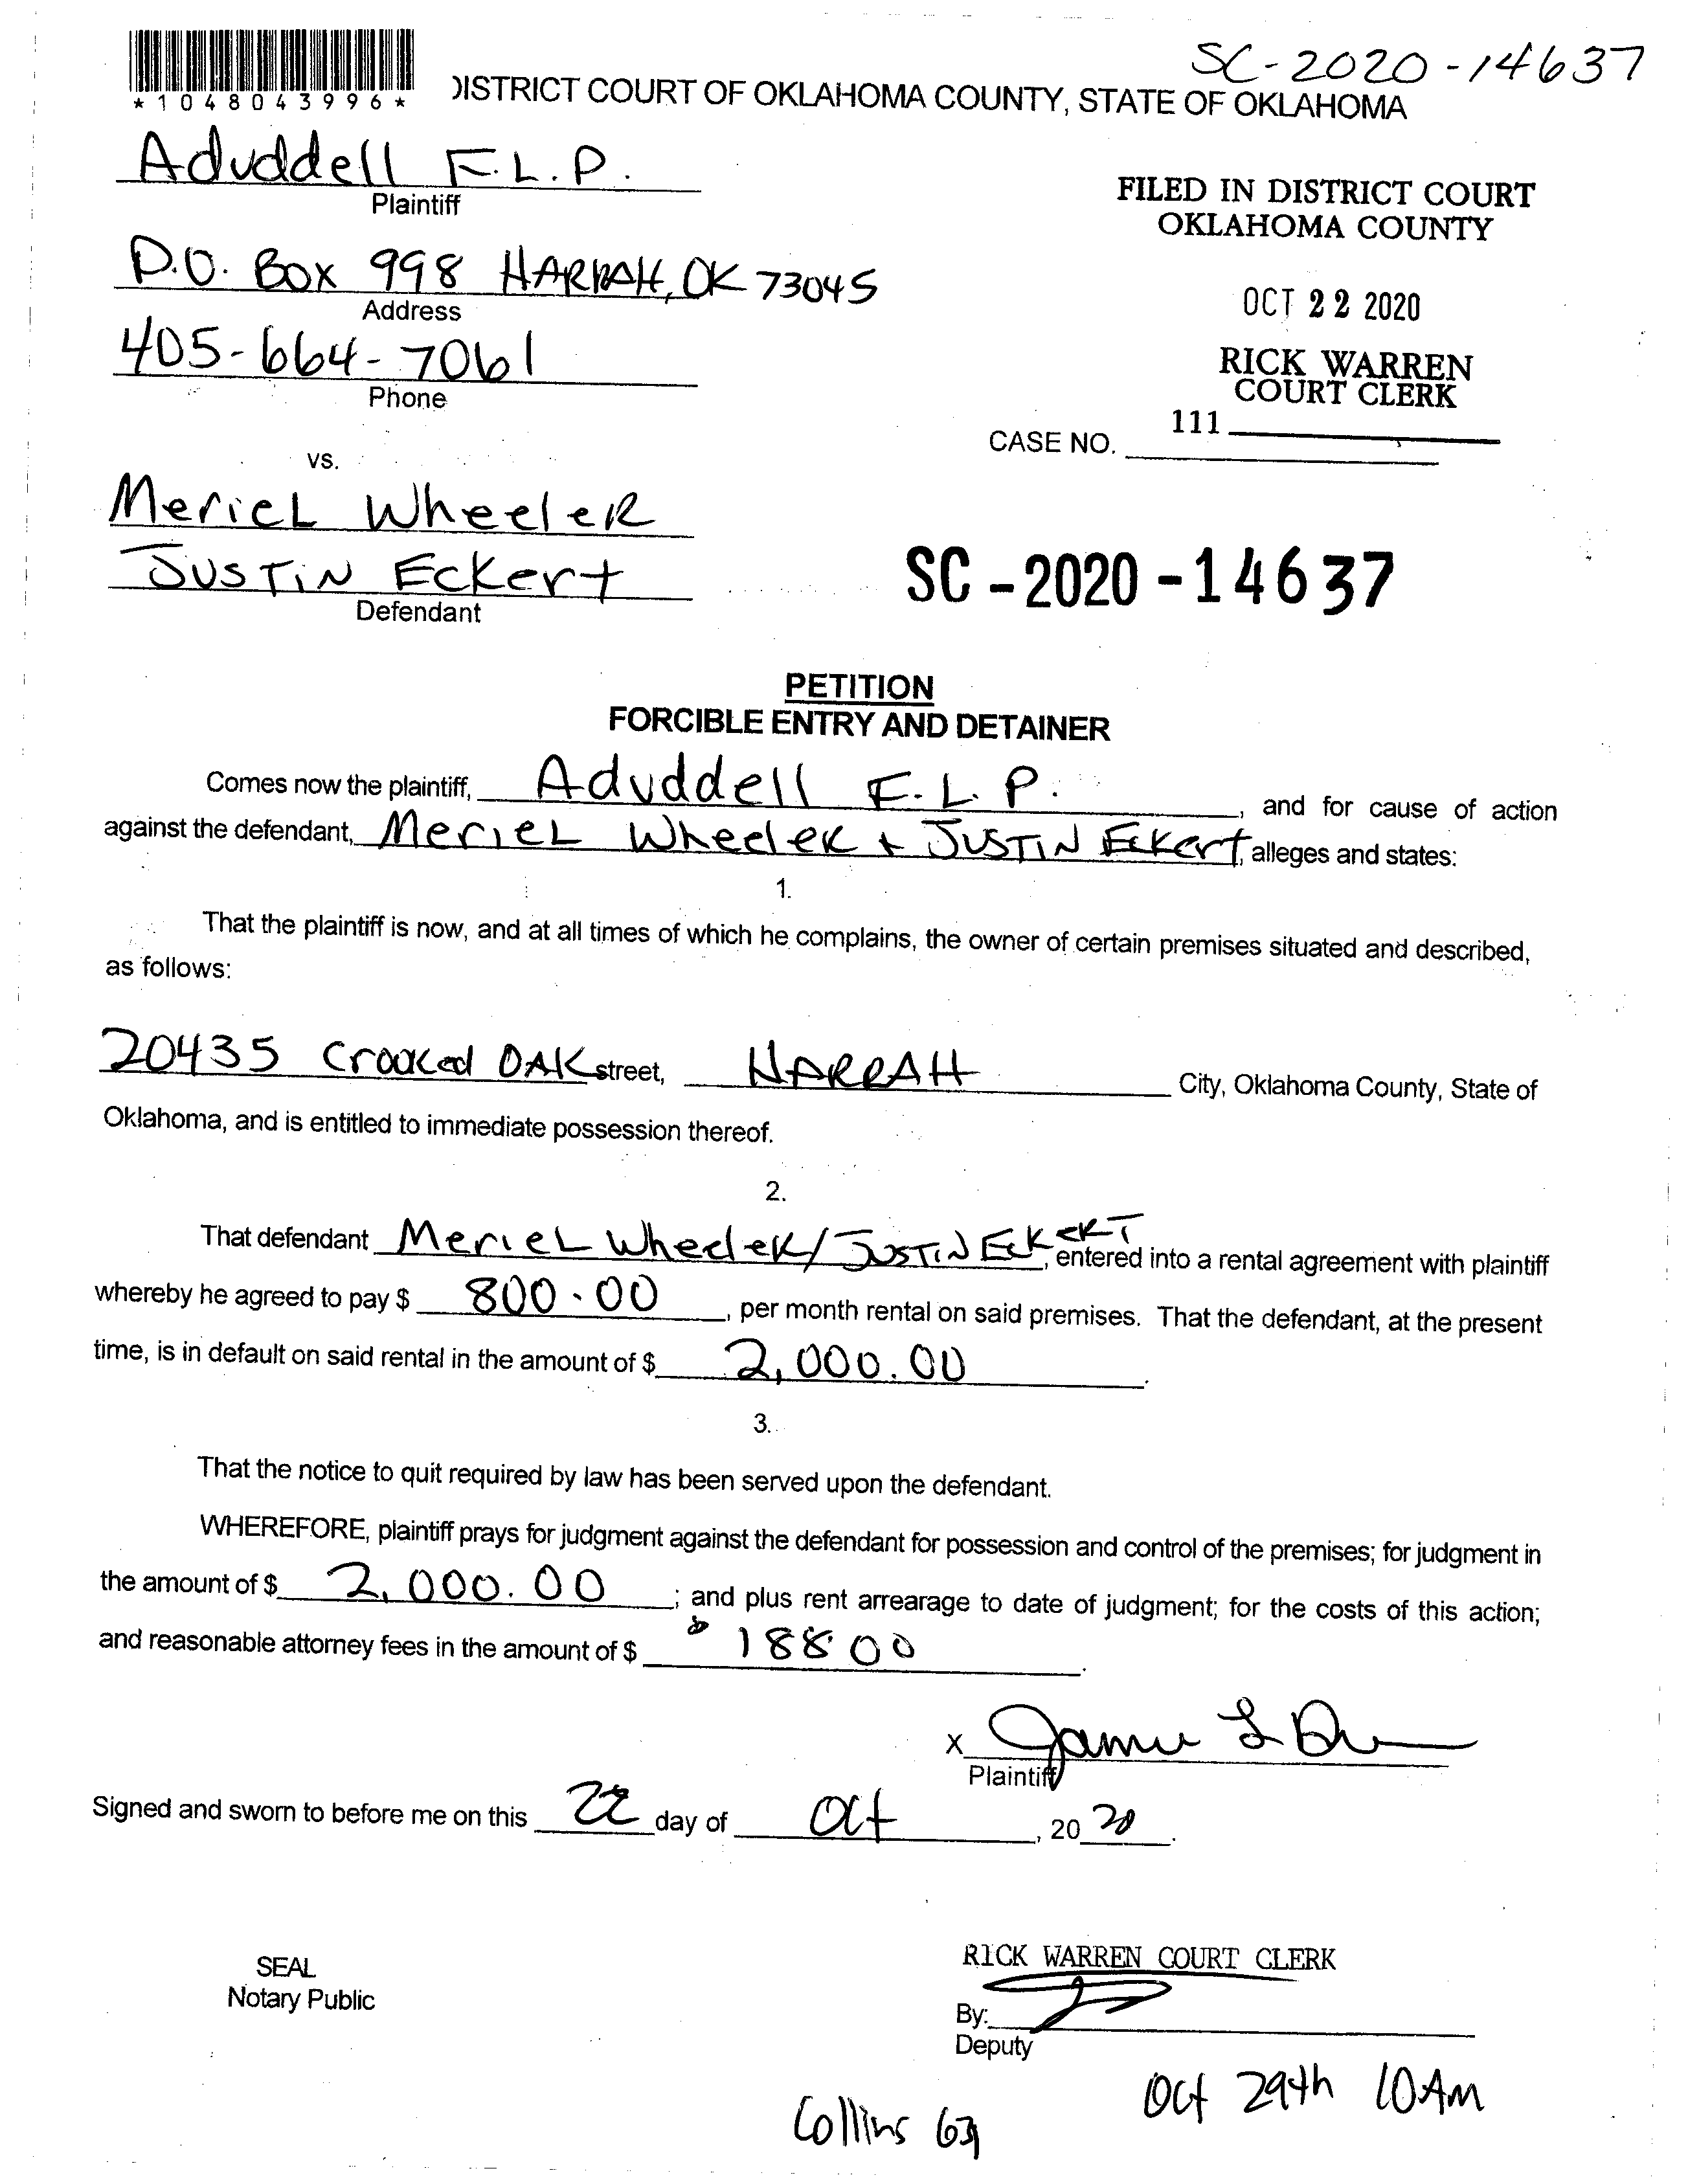 SC-2020-14637
*1048043996*
DISTRICT COURT OF OKLAHOMA COUNTY, STATE OF OKLAHOMA
Aduddell F.L.P.
Plaintiff
FILED IN DISTRICT COURT
OKLAHOMA COUNTY
P.O. Box 998 HARRAH, OK 73045
Address
OCT 22 2020
405-664-7061
Phone
RICK WARREN
COURT CLERK
111
CASE NO.
vs.
Meriel Wheeler
Justin Eckert
Defendant
SC-2020-14637
PETITION
FORCIBLE ENTRY AND DETAINER
Comes now the plaintiff, Aduddell F.L.P., and for cause of action
against the defendant, Meriel Wheeler + Justin Eckert, alleges and states:
1.
That the plaintiff is now, and at all times of which he complains, the owner of certain premises situated and described,
as follows:
20435 Crooked OAK street, HARRAH City, Oklahoma County, State of
Oklahoma, and is entitled to immediate possession thereof.
2.
That defendant Meriel Wheeler/Justin Eckert, entered into a rental agreement with plaintiff
whereby he agreed to pay $ 800.00, per month rental on said premises. That the defendant, at the present
time, is in default on said rental in the amount of $ 2,000.00.
3.
That the notice to quit required by law has been served upon the defendant.
WHEREFORE, plaintiff prays for judgment against the defendant for possession and control of the premises; for judgment in
the amount of $ 2,000.00; and plus rent arrearage to date of judgment; for the costs of this action;
and reasonable attorney fees in the amount of $ 188 00.
X
Plaintiff
Signed and sworn to before me on this 22 day of Oct, 2020.
SEAL
Notary Public
RICK WARREN COURT CLERK
By:
Deputy
Oct 29th 10AM
Collins